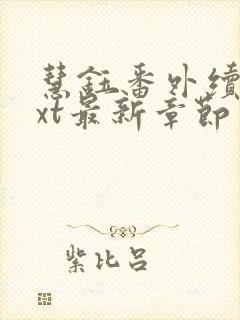 慧鈺番外續
xt最新章節
紫比呂